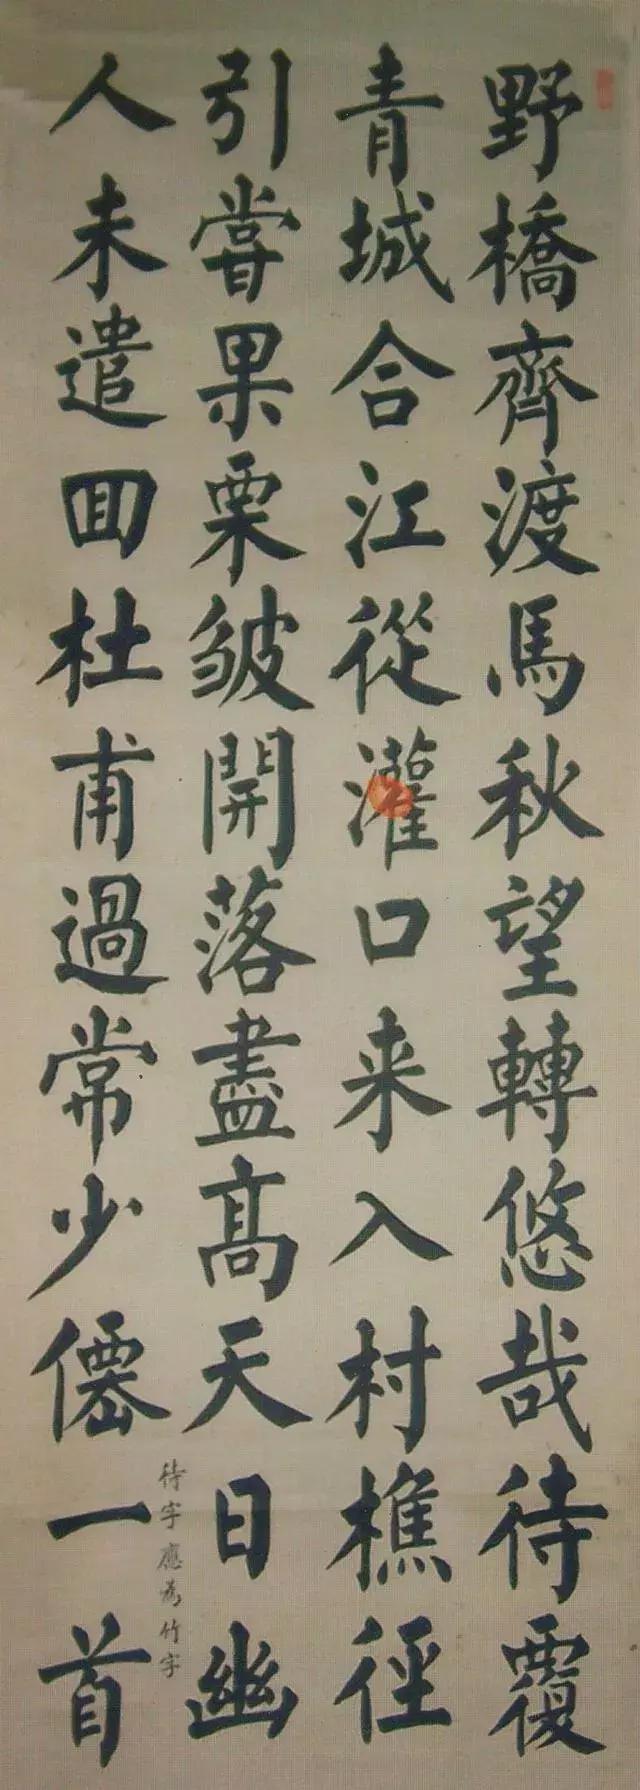 野橋齊渡馬秋望轉悠哉待覆
青城合江從灌口来入村樵徑
引嘗果栗皱開落盡高天日幽
人未遣囬杜甫過常少僊一首
待字應為竹字